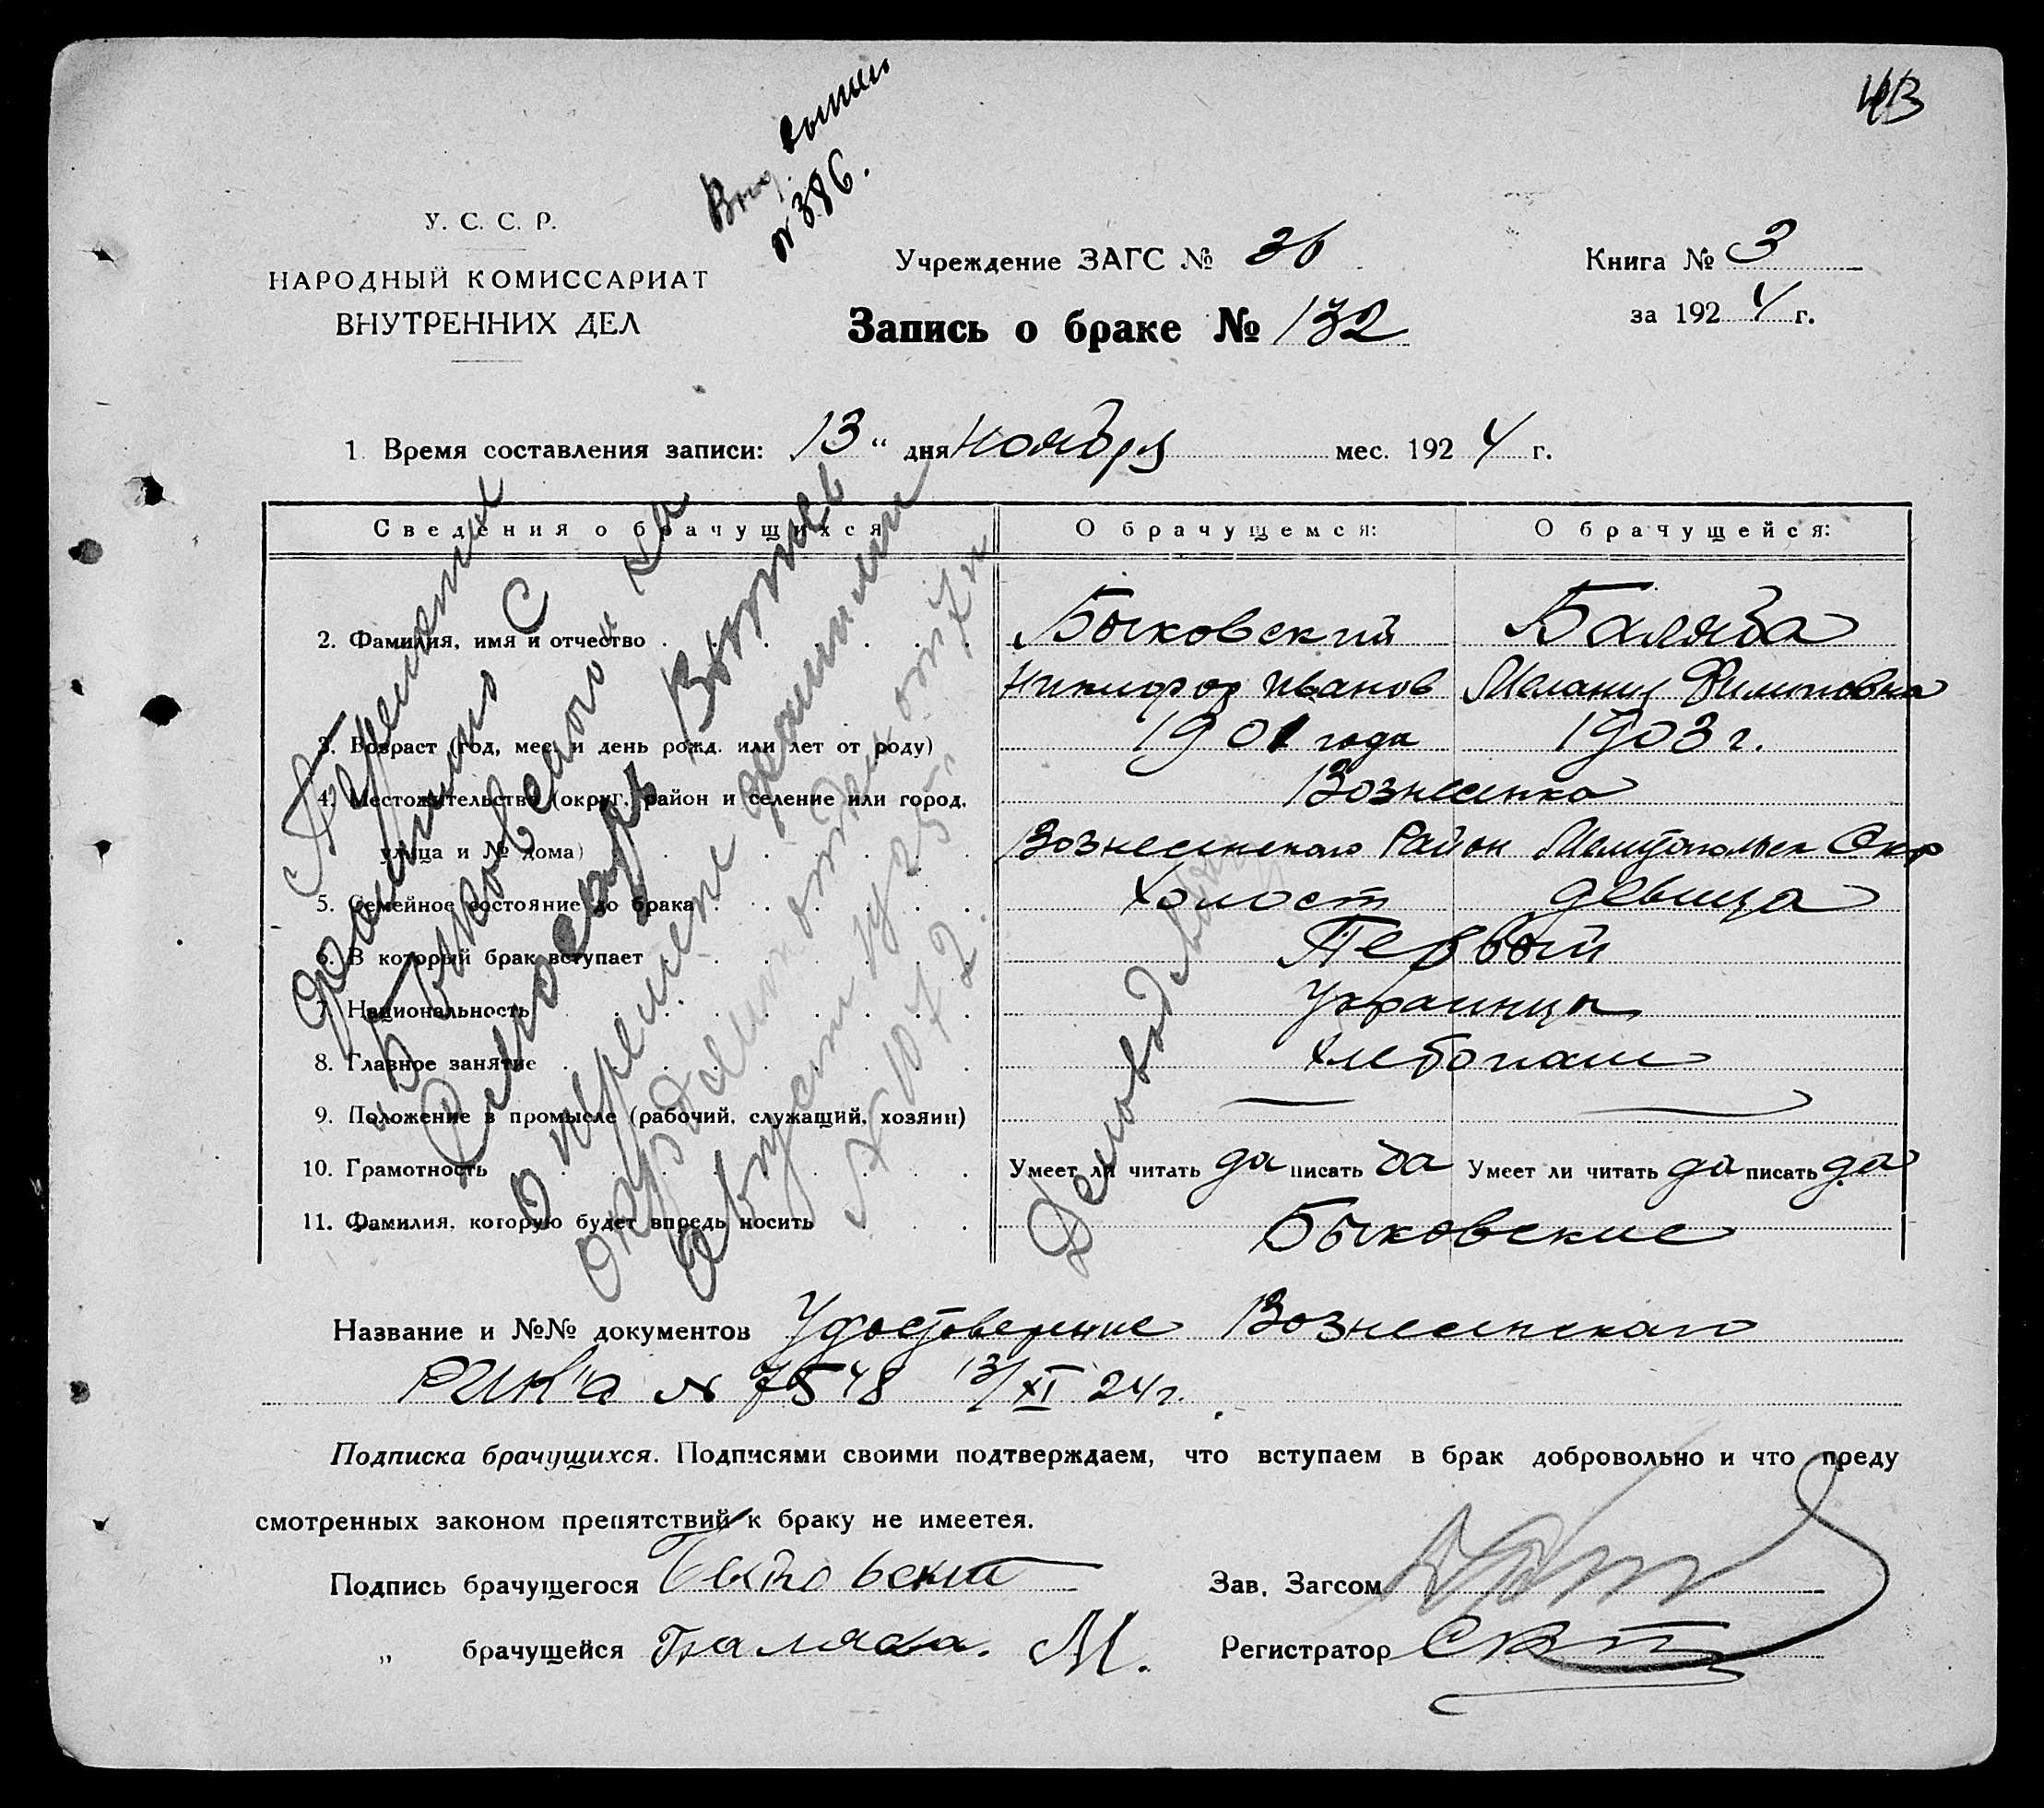 43
выпись
№ 386.
У. С. С. Р.
НАРОДНЫЙ КОМИССАРИАТ
ВНУТРЕННИХ ДЕЛ
Учреждение ЗАГС № 36
Книга № 3
Запись о браке № 132
за 1924 г.
1. Время составления записи: 13 " дня ноября мес. 1924 г.
Сведения о брачущихся
О брачущемся:
О брачущейся:
2. Фамилия, имя и отчество
Быковский
Баляба
Никифор Иванов
Мелания Филиповна
3. Возраст (год, мес. и день рожд. или лет от роду)
1901 года
1903 г.
4. Местожительство (округ, район и селение или город,
Вознесенка
улица и № дома)
Вознесенского Район Мелитопольск Окр
5. Семейное состояние до брака
Холост
девица
6. В который брак вступает
Первый
7. Национальность
Украинцы
8. Главное занятие
Хлебопаш
9. Положение в промысле (рабочий, служащий, хозяин)
10. Грамотность
Умеет ли читать да писать да
Умеет ли читать да писать да
11. Фамилия, которую будет впредь носить
Быковские
фамилию с
Быковского на
о перемене фамилии
августа 1925
№ 1072.
Деловод
Название и №№ документов Удостоверение Вознесенского
РИК'а № 7548 13/XI 24 г.
Подписка брачущихся. Подписями своими подтверждаем, что вступаем в брак добровольно и что преду
смотренных законом препятствий к браку не имеетея.
Подпись брачущегося Быковский
Зав. Загсом
„ брачущейся Баляба. М.
Регистратор